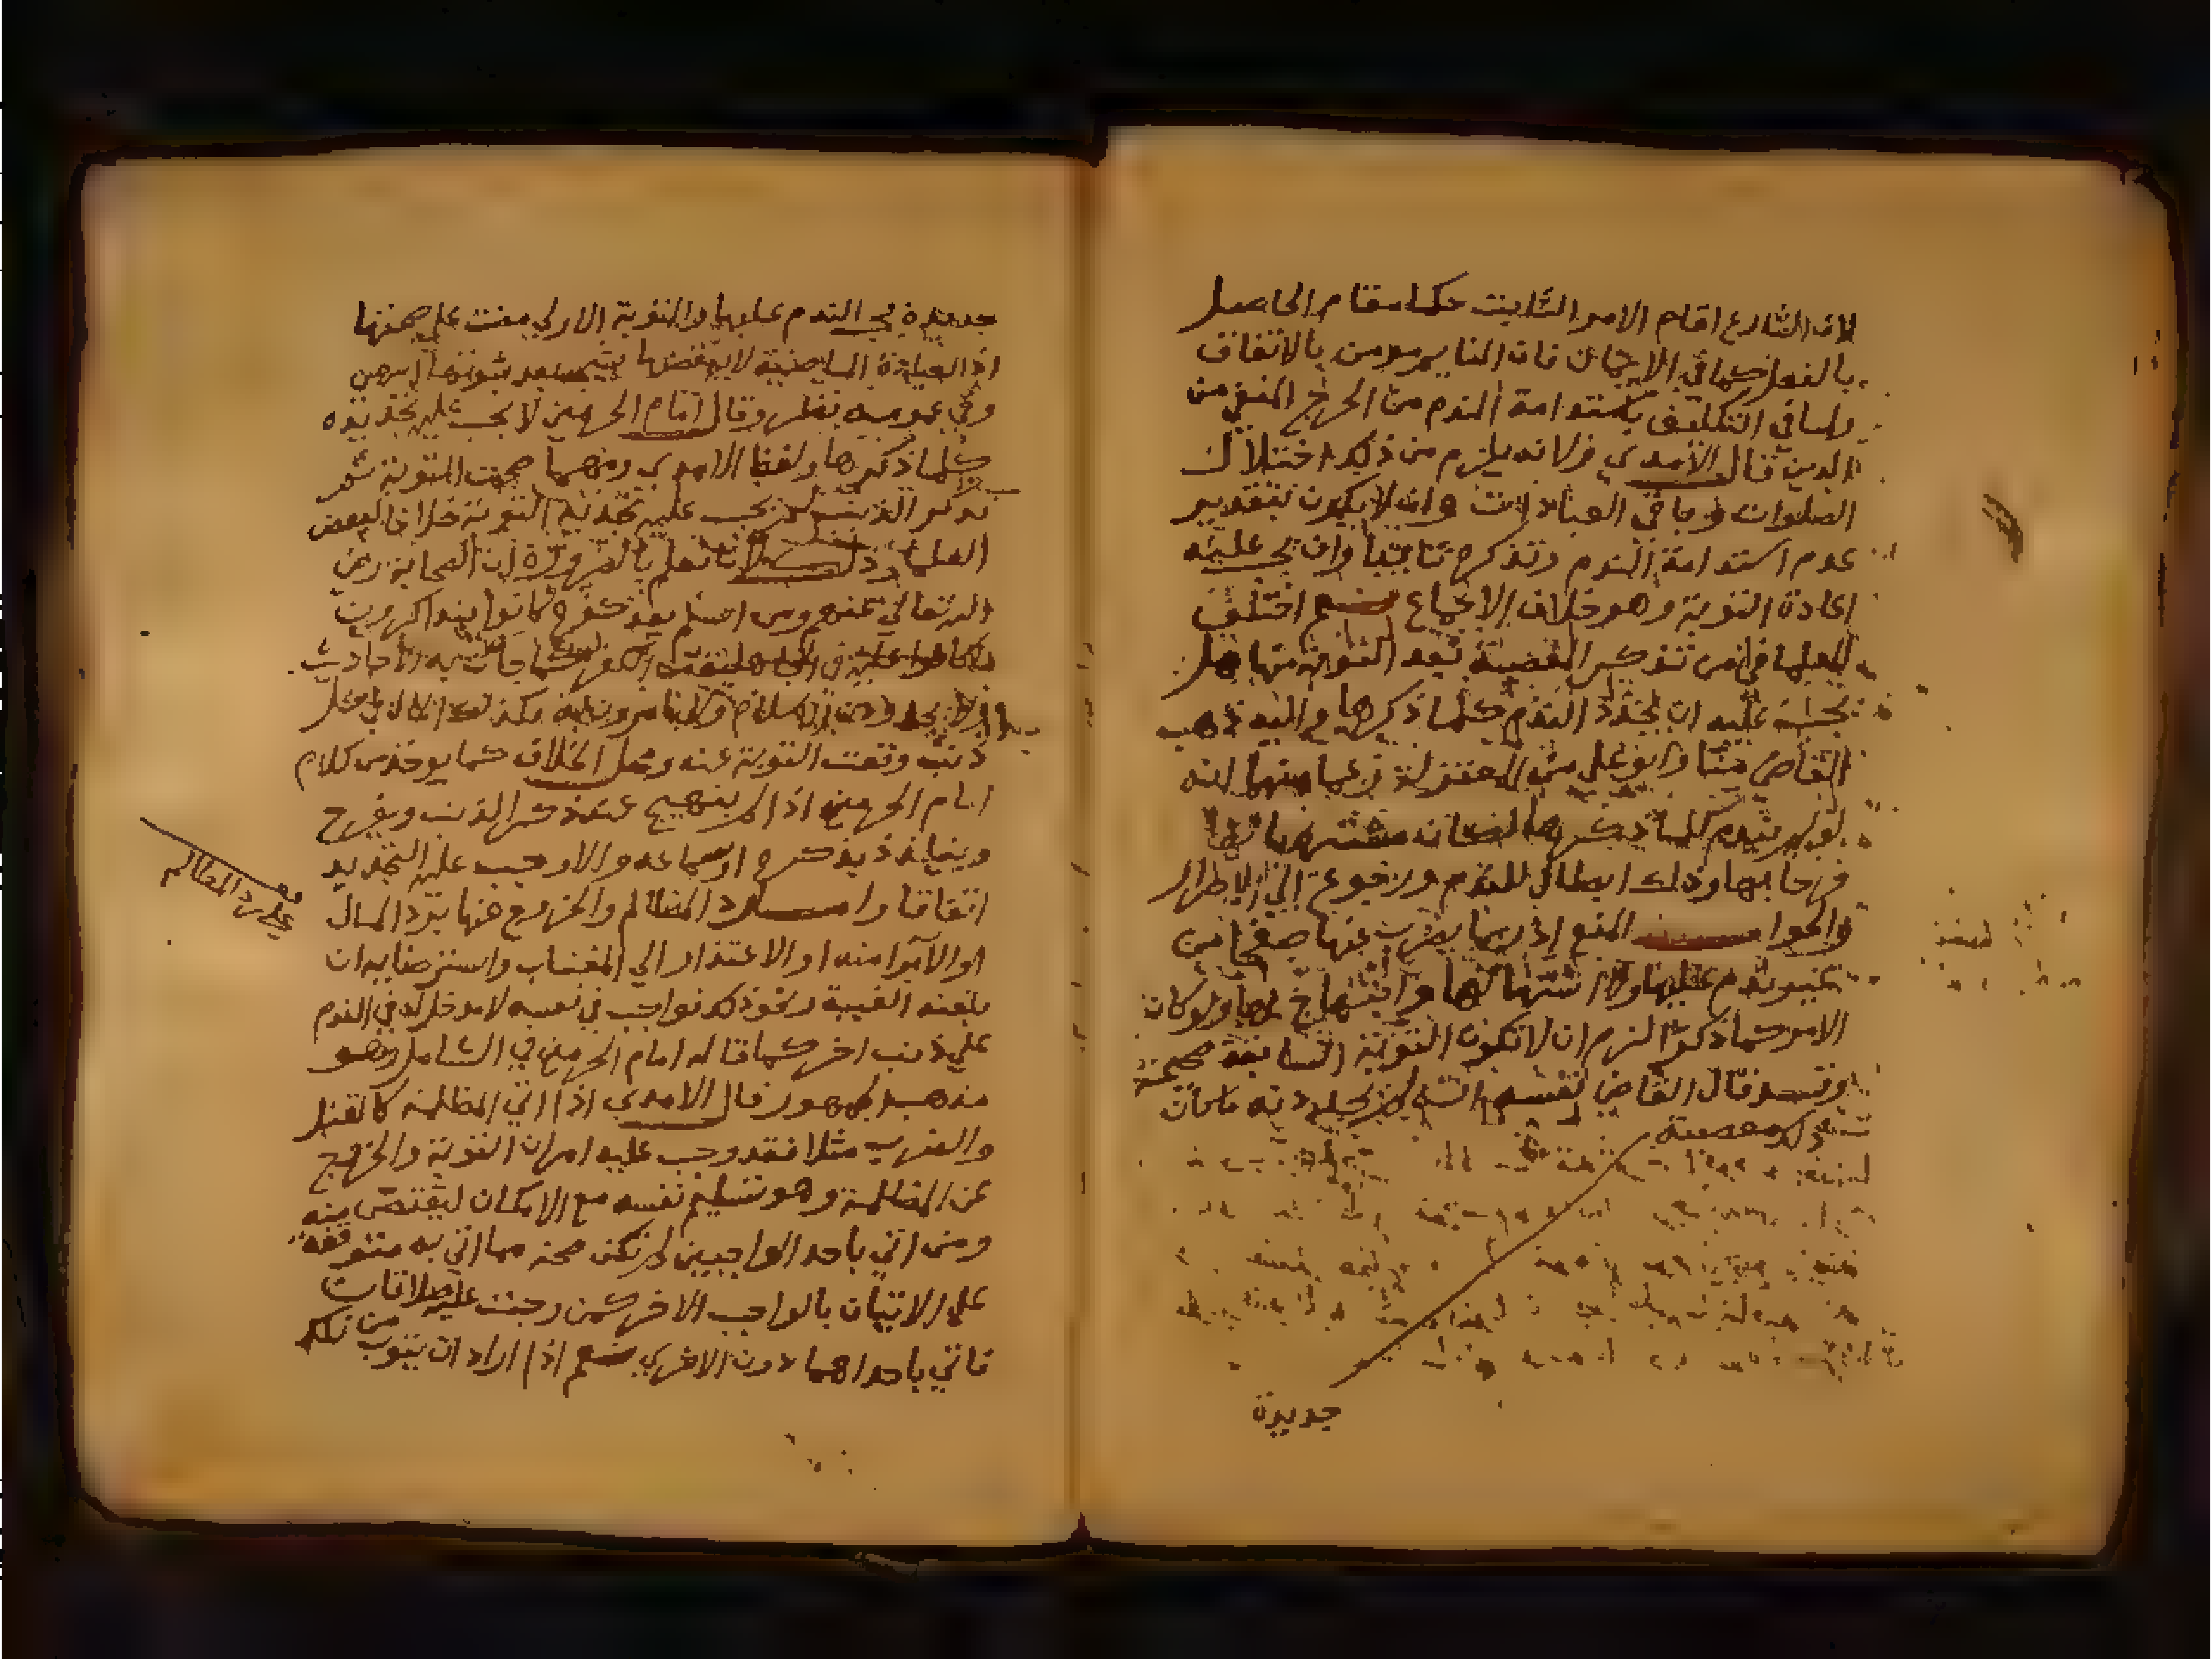 لان الشارع اقام الامر الثابت حكما مقام الحاصل
بالفعل كما في الايمان فان النايم مومن بالاتفاق
ولما في التكليف باستدامة الندم من الحرج المنفي من
الدين قال الآمدي ولانه يلزم من ذلك اختلال
الصلوات وباقي العبادات وان لا يكون بتقدير
عدم استدامة الندم وتذكره تائبا وان يجب عليه
اعادة التوبة وهو خلاف الاجماع ثم اختلف
العلما فيمن تذكر المعصية بعد التوبة منها هل
يجب عليه ان يجدد الندم كلما ذكرها واليه ذهب
القاضي منا وابو علي من المعتزلة زعما منهما انه
لو لم يندم كلما ذكرها لكان مشتهيا لها
فرحا بها وذلك ابطال للندم ورجوع الي الاصرار
والجواب المنع اذ ربما يضرب عنها صفحا من
غير ندم عليها ولا اشتهاء لها وابتهاج بها ولو كان
الامر كما ذكر لزم ان لا تكون التوبة السابقة صحيحة
وقد قال القاضي نفسه انه اذا لم يجدد ندمه كان
ذلك معصية
جديدة
جديدة يجب الندم عليها والتوبة الاولي مضت علي صحتها
اذ العبادة الماضية لا ينقضها شي بعد ثبوتها انتهي
وفي عمومه نظر وقال امام الحرمين لا يجب عليه تجديده
كلما ذكرها ولفظ الامدي ومهما صحت التوبة ثم
تذكر الذنب لم يجب عليه تجديد التوبة خلافا لبعض
العلما وذلك لانا نعلم بالضرورة ان الصحابة رضي
الله تعالي عنهم ومن اسلم بعد كفره كانوا يتذاكرون
ما كانوا عليه في الجاهلية من الكفر كما جات به الاحاديث
ولا يجددون الاسلام ولا يامرون به فكذلك الحال في كل
ذنب وقعت التوبة عنه ومحل الخلاف كما يوخذ من كلام
امام الحرمين اذا لم يبتهج عند ذكر الذنب ويفرح
ويتلذذ بذكره او سماعه والا وجب عليه التجديد
اتفاقا واما رد المظالم والخروج عنها برد المال
او الابرا منه او الاعتذار الي المغتاب واسترضايه ان
بلغته الغيبة ونحو ذلك فواجب في نفسه لا مدخل له في الندم
علي ذنب اخر كما قاله امام الحرمين في الشامل وهو
مذهب الجمهور قال الامدي اذا اتي المظلمة كالقتل
والضرب مثلا فقد وجب عليه امران التوبة والخروج
عن المظلمة وهو تسليم نفسه مع الامكان ليقتص منه
ومن اتي باحد الواجبين لم تكن صحة ما اتي به متوقفة
علي الاتيان بالواجب الاخر كمن وجبت عليه صلاتان
فاتي باحداهما دون الاخري ثم اذا اراد ان يتوب من تلك
علي رد المظالم